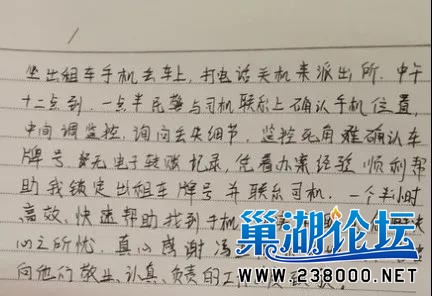 坐出租车手机丢车上,打电话关机来派出所.中午
十二点到.一点半民警与司机联系上确认手机位置,
中间调监控,询问丢失细节,监控死角难确认车
牌号 暂无电子转账记录,凭着办案经验,顺利帮
助我锁定出租车牌号并联系司机,一个半小时
高效、快速帮助找到手机
心之所忧.真心感谢
向他们敬业、认真、负责的工作
巢湖论坛
www.238000.net